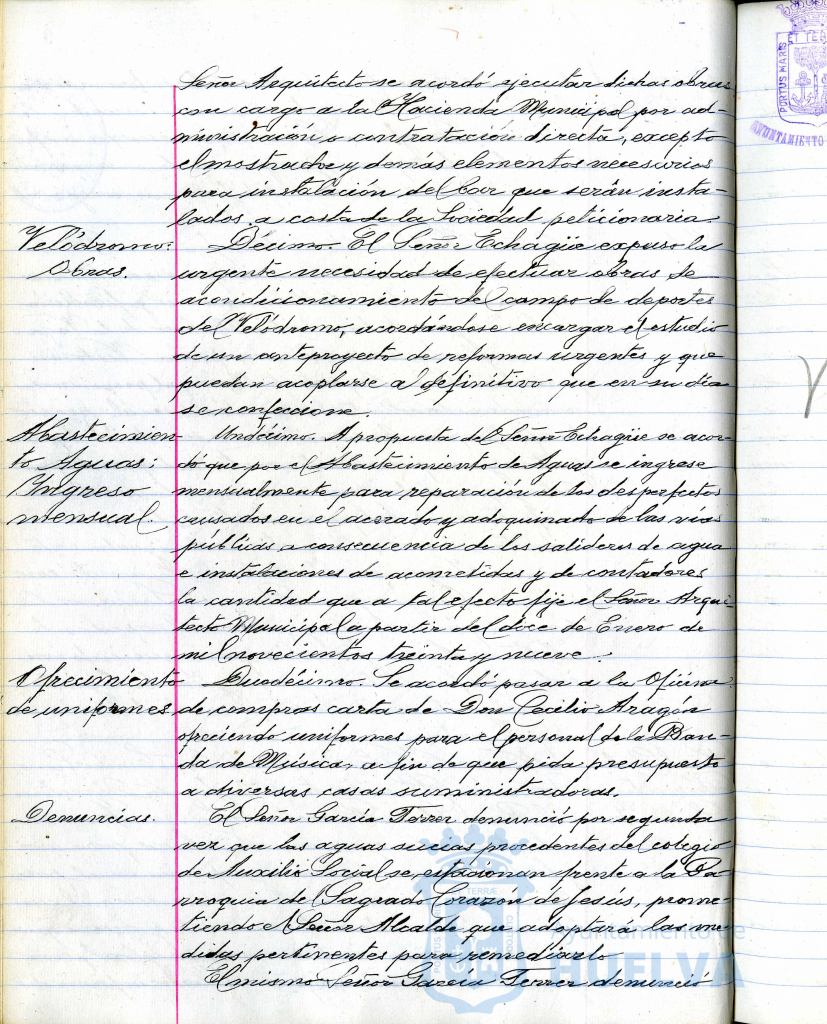 Señor Arquitecto se acordó ejecutar dichas obras
con cargo a la Hacienda Municipal por ad-
ministración o contratación directa, excepto
el mostrador y demás elementos necesarios
para instalación del bar que serán insta-
lados a costa de la Sociedad peticionaria.
Velódromo:
Obras.
Décimo. El Señor Echagüe expuso la
urgente necesidad de efectuar obras de
acondicionamiento del campo de deportes
del Velódromo, acordándose encargar el estudio
de un anteproyecto de reformas urgentes y que
puedan acoplarse al definitivo que en su día
se confeccione.
Abastecimien-
to Aguas:
Yngreso
mensual.
Undécimo. A propuesta del Señor Echagüe se acor-
dó que por el Abastecimiento de Aguas se ingrese
mensualmente para reparación de los desperfectos
causados en el acerado y adoquinado de las vías
públicas a consecuencia de los salideros de agua
e instalaciones de acometidas y de contadores
la cantidad que a tal efecto fije el Señor Arqui-
tecto Municipal a partir del doce de Enero de
mil novecientos treinta y nueve.
Ofrecimiento
de uniformes
Duodécimo. Se acordó pasar a la Oficina
de compras carta de Don Cecilio Aragón
ofreciendo uniformes para el personal de la Ban-
da de Música, a fin de que pida presupuesto
a diversas casas suministradoras.
Denuncias.
El Señor García Ferrer denunció por segunda
vez que las aguas sucias procedentes del colegio
de Auxilio Social se estacionan frente a la Pa-
rroquia del Sagrado Corazón de Jesús, prome-
tiendo el Señor Alcalde que adoptará las me-
didas pertinentes para remediarlo
El mismo Señor García Ferrer denunció
PORTUS MARIS
AYUNTAMIENTO
Ayuntamiento de
HUELVA